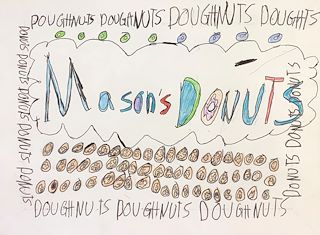 DOUGHNUTS DOUGHNUTS DOUGHNUTS DOUGHTS
Mason's DONUTS
DONUTS DONUTS DONUTS DONUTS DONUTS
DONUTS DONUTS DONUTS
DOUGHNUTS DOUGHNUTS DOUGHNUTS